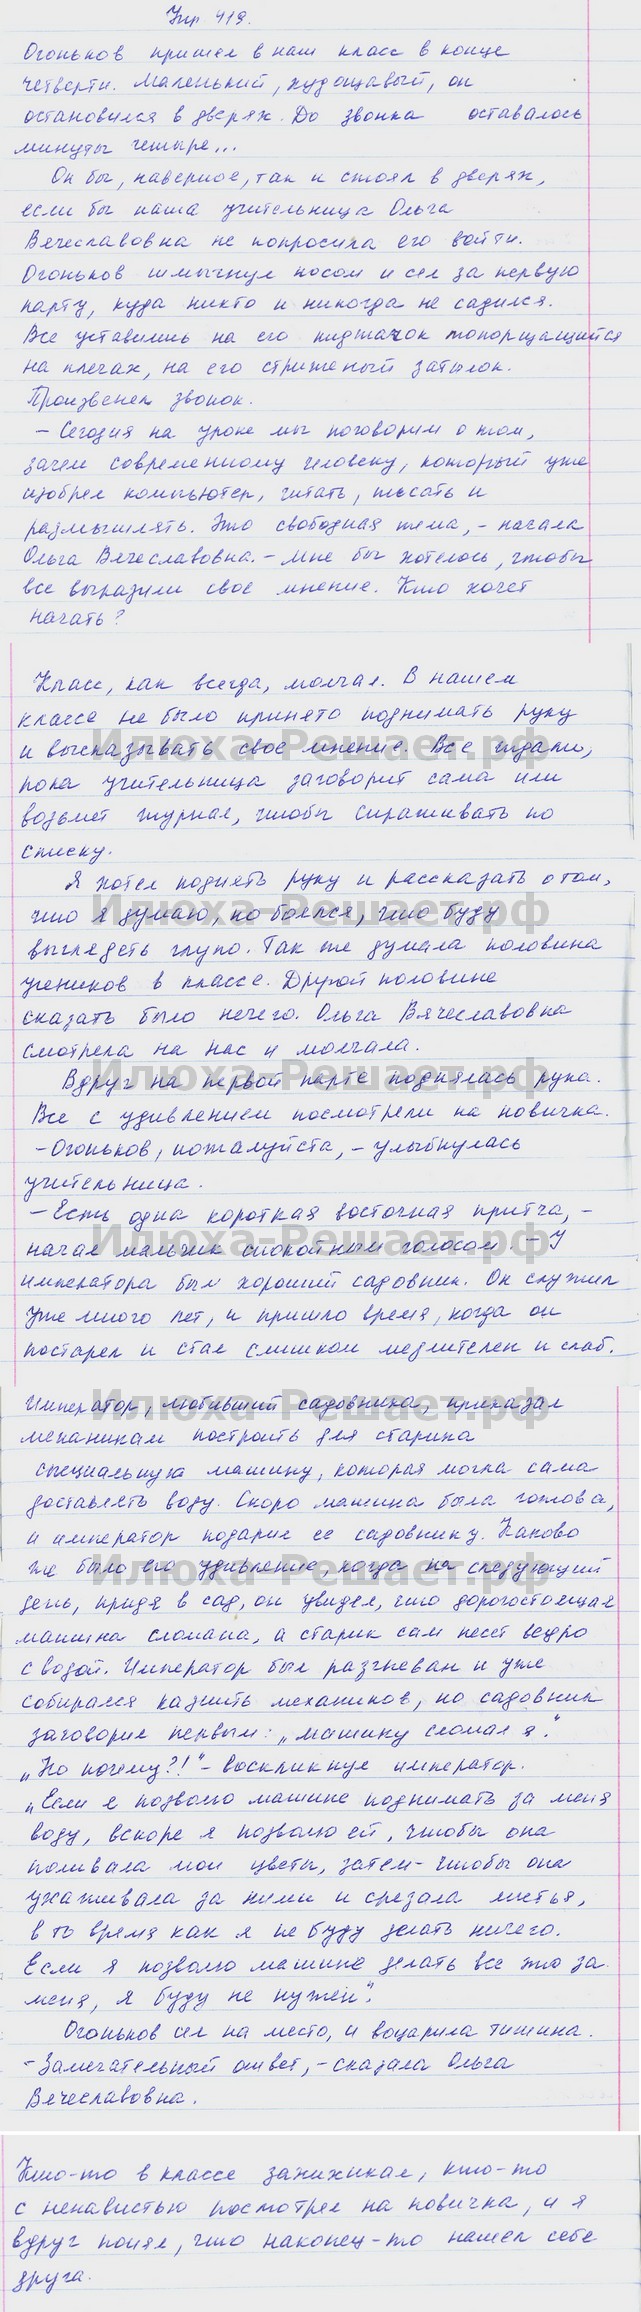 Упр 419.
Огоньков пришел в наш класс в конце
четверти. Маленький, худощавый, он
остановился в дверях. До звонка оставалось
минуты четыре...
Он бы, наверное, так и стоял в дверях,
если бы наша учительница Ольга
Вячеславовна не попросила его войти.
Огоньков шмыгнул носом и сел за первую
парту, куда никто и никогда не садился.
Все уставились на его пиджачок топорщащийся
на плечах, на его стриженый затылок.
Прозвенел звонок.
- Сегодня на уроке мы поговорим о том,
зачем современному человеку, который уже
изобрел компьютер, читать, писать и
размышлять. Это свободная тема, - начала
Ольга Вячеславовна. - Мне бы хотелось, чтобы
все выразили свое мнение. Кто хочет
начать?
Класс, как всегда, молчал. В нашем
классе не было принято поднимать руку
и высказывать свое мнение. Все ждали,
пока учительница заговорит сама или
возьмет журнал, чтобы спрашивать по
списку.
Я хотел поднять руку и рассказать о том,
что я думаю, но боялся, что буду
выглядеть глупо. Так же думала половина
учеников в классе. Другой половине
сказать было нечего. Ольга Вячеславовна
смотрела на нас и молчала.
Вдруг на первой парте поднялась рука.
Все с удивлением посмотрели на новичка.
- Огоньков, пожалуйста, - улыбнулась
учительница.
- Есть одна короткая восточная притча, -
начал мальчик спокойным голосом. - У
императора был хороший садовник. Он служил
уже много лет, и пришло время, когда он
постарел и стал слишком медлителен и слаб.
Император, любивший садовника, приказал
механикам построить для старика
специальную машину, которая могла сама
доставлять воду. Скоро машина была готова,
и император подарил ее садовнику. Каково
же было его удивление, когда на следующий
день, придя в сад, он увидел, что дорогостоящая
машина сломана, а старик сам несет ведро
с водой. Император был разгневан и уже
собирался казнить механиков, но садовник
заговорил первым: „Машину сломал я".
„Но почему?!" - воскликнул император.
„Если я позволю машине поднимать за меня
воду, вскоре я позволю ей, чтобы она
поливала мои цветы, затем - чтобы она
ухаживала за ними и срезала листья,
в то время как я не буду делать ничего.
Если я позволю машине делать все это за
меня, я буду не нужен".
Огоньков сел на место, и воцарила тишина.
- Замечательный ответ, - сказала Ольга
Вячеславовна.
Кто-то в классе захихикал, кто-то
с ненавистью посмотрел на новичка, и я
вдруг понял, что наконец-то нашел себе
друга.
Илюха-Решает.рф
Илюха-Решает.рф
Илюха-Решает.рф
Илюха-Решает.рф
Илюха-Решает.рф
Илюха-Решает.рф